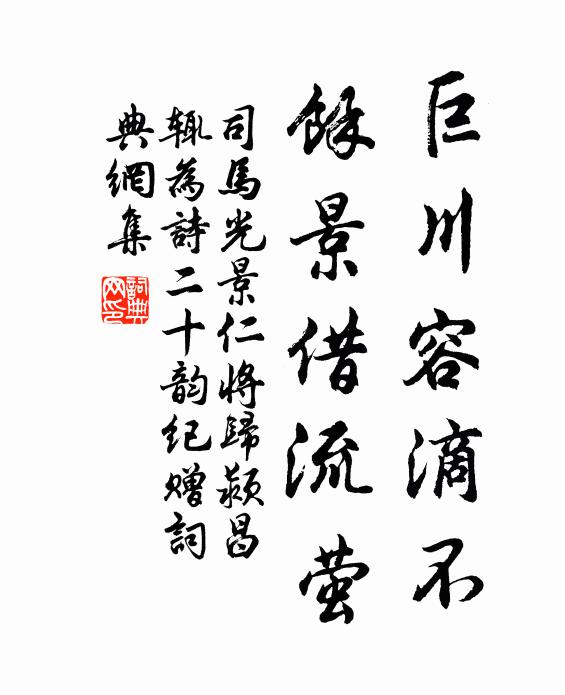 巨川容滴不
餘景借流萤
司馬光景仁將歸颍昌
輒為詩二十韵紀赠詞
典網集
詞典
网印